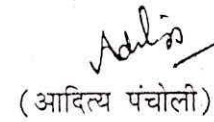 (आदित्य पंचोली)